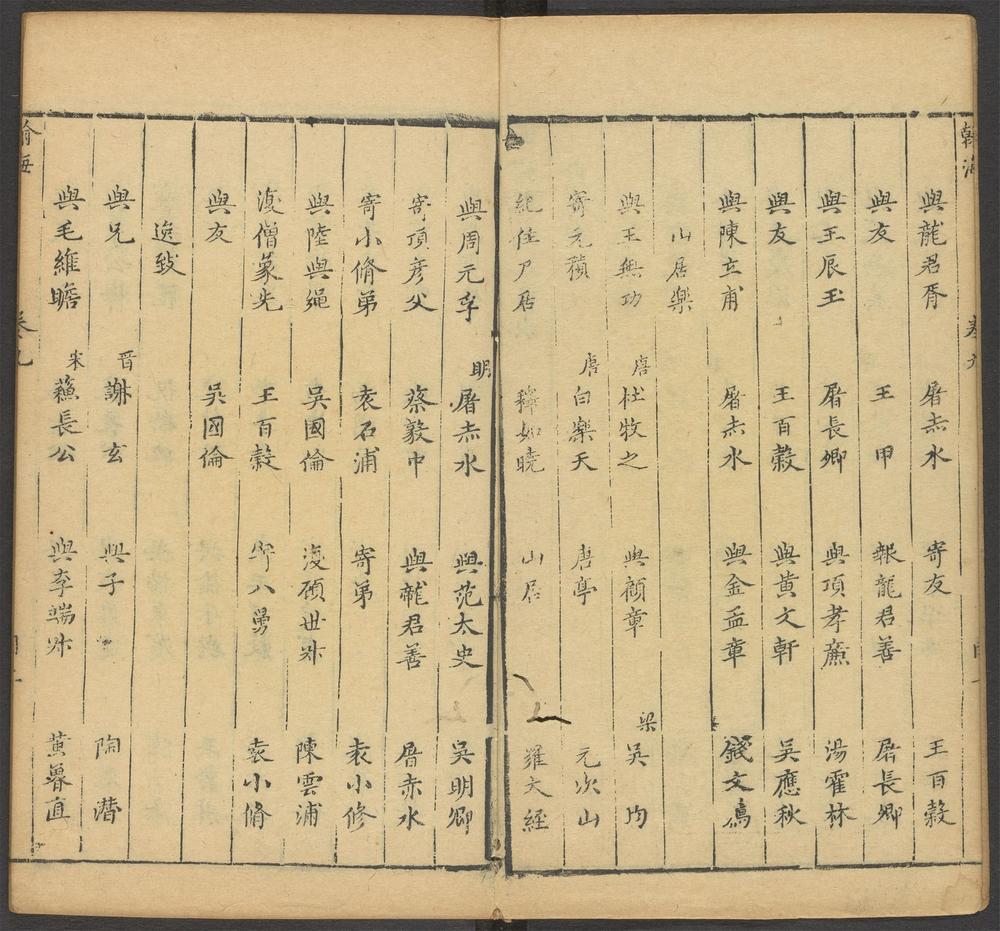 翰海 卷九
與龍君胥 屠赤水 寄友 王百穀
與友 王甲 報龍君善 屠長卿
與王辰玉 屠長卿 與項孝廉 湯霍林
與友 王百穀 與黃文軒 吳應秋
與陳立甫 屠赤水 與金孟章 錢文薦
山居樂
與王無功 唐 杜牧之 與顧章 梁 吳均
寄元稹 唐 白樂天 唐亭 元次山
紀住尸居 釋如曉 山居 羅大經
與周元孚 明 屠赤水 與范太史 吳明卿
寄項彥父 蔡毅中 與龍君善 屠赤水
寄小脩弟 袁石浦 寄弟 袁小修
與陸與繩 吳國倫 復碩世叔 陳雲浦
復僧篆先 王百穀 寄八舅 袁小脩
與友 吳國倫
逸致
與兄 晉 謝玄 與子 陶潛
與毛維瞻 宋 蘇長公 與李端叔 黃魯直
翰海 卷九